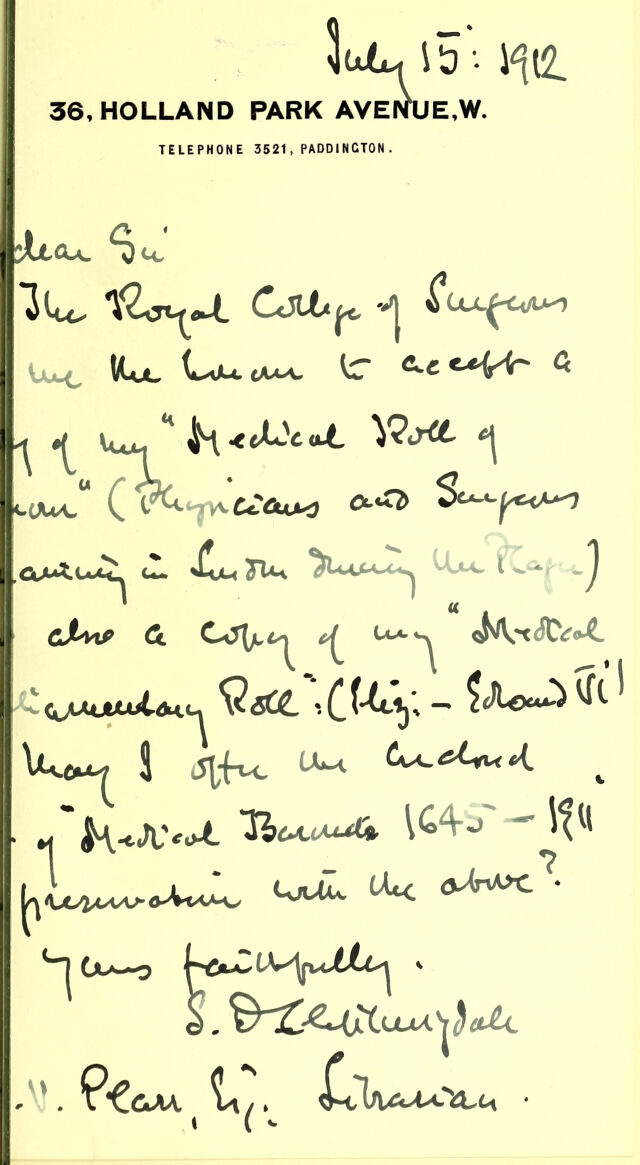 July 15: 1912
36, HOLLAND PARK AVENUE, W.
TELEPHONE 3521, PADDINGTON.
dear Sir
The Royal College of Surgeons
me the honour to accept a
y of my "Medical Roll of
nour" (Physicians and Surgeons
aining in London during the Plague)
also a copy of my "Medical
liamentary Roll": (Eliz: – Edward VII)
May I offer the enclosed
of "Medical Baronets 1645 – 1911"
preservation with the above?
Yours faithfully.
S. D. Clippingdale
V. Plarr, Esq. Librarian.